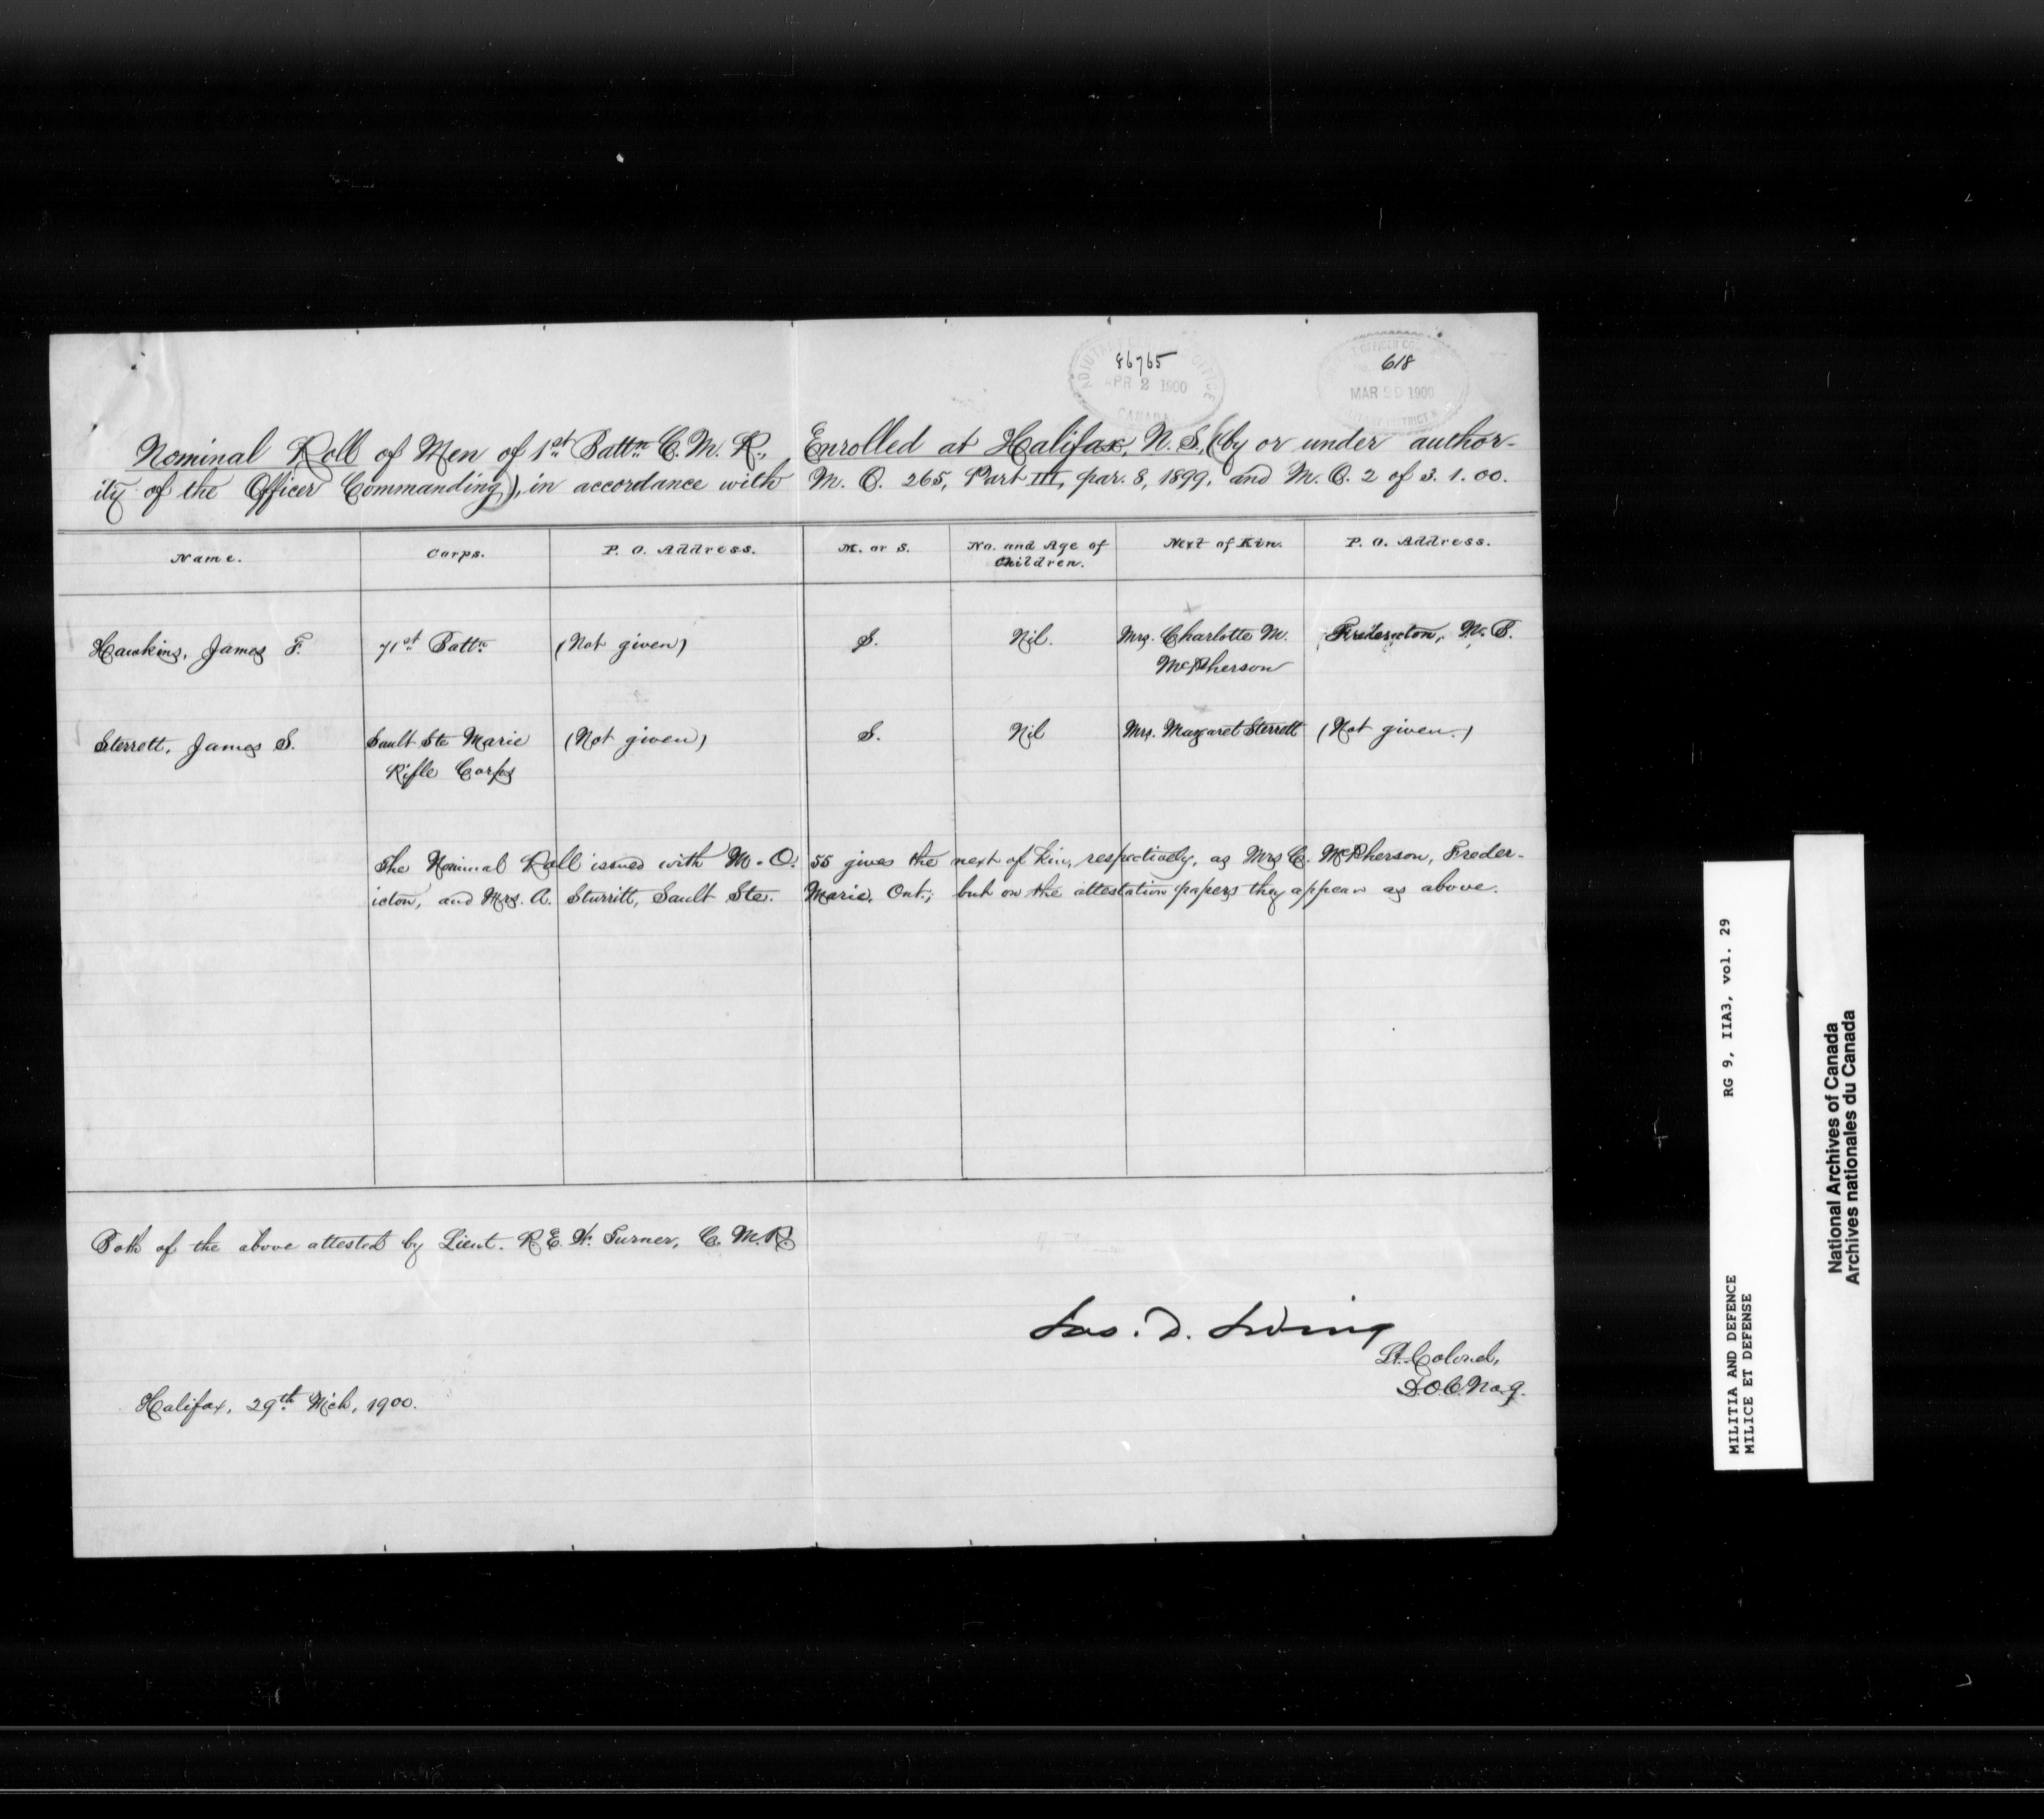 86765
ADJUTANT OFFICE
APR 2 1900
CANADA
618
OFFICER
MAR 1900
DISTRICT
Nominal Roll of Men of 1st Battn. C. M. R., Enrolled at Halifax, N. S., (by or under author-
ity of the Officer Commanding), in accordance with M. O. 265, Part III, par. 8, 1899, and M. O. 2 of 3. 1. 00.
Name. Corps. P. O. Address. M. or S. No. and Age of Children. Next of Kin. P. O. Address.
Hawkins, James F. 71st Battn. (Not given) S. Nil. Mrs. Charlotte M. Fredericton, N. B.
McPherson
Sterrett, James S. Sault Ste Marie (Not given) S. Nil Mrs. Margaret Sterrett (Not given.)
Rifle Corps
The Nominal Roll issued with M. O. 55 gives the next of kin, respectively, as Mrs C. McPherson, Freder-
icton, and Mrs. A. Sturritt, Sault Ste. Marie, Ont.; but on the attestation papers they appear as above.
Both of the above attested by Lieut. R. E. W. Turner, C. M. R.
Jas. D. Irving
Lt. Colonel,
D.O.C. No. 9.
Halifax, 29th Mch, 1900.
RG 9, IIA3, vol. 29
MILITIA AND DEFENCE
MILICE ET DEFENSE
National Archives of Canada
Archives nationales du Canada